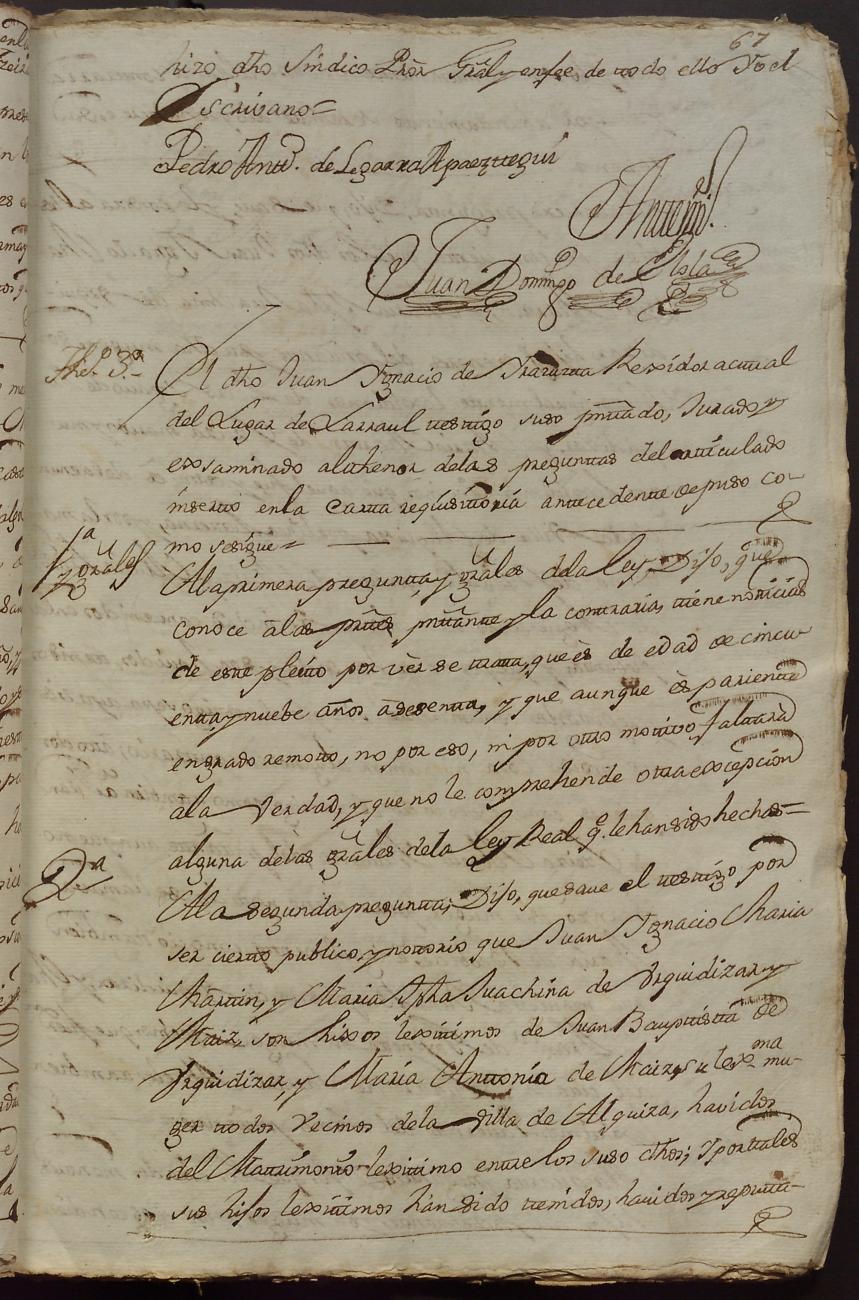 67
hizo dho Síndico Pror Gral, y enfee de todo ello Yo el
Escrivano=
Pedro Antto. de Legarra Apaezttegui
Antemí.
Juan Domingo de
tho. 3.o
El dho Juan Ygnacio de Rexidor actual
del Lugar de Larraul testtigo suso pnttado, Jurado y
exsaminado althenor delas preguntas del artticulado
inserto enla Cartta requisittoria antecedente depuso co-
mo se sigue=
1a y grales
Ala primera pregunta, y grales dela ley, Dijo, que
conoce àlas prttes pnttante y la contraria, ttiene noticias
de este pleito por vèr se tratta, que ès de edad de cincu-
entta y nuebe años àdesentta, y que aunque ès pariente
en grado remotto, no por eso, ni por otro mottivo falttara
àla Verdad, y que no le comprehende otra excepcion
alguna delas grales dela ley Real q. le han sido hechas=
2a
Ala segunda pregunta, Dijo, que save el testtigo por
ser cierto publico, y nottorio que Juan Ygnacio Maria
Martin, y Maria Jpha Juachina de Urquidizar y
Maiz, son hixos lexitimos de Juan Bauptistta de
Urquidizar, y María Anttonia de Maiz, su lexma mu-
ger ttodos Vecinos dela Villa de Alquiza, havidos
del Mattrimonio lexitimo entre los suso dhos; y por tales
sus hijos lexitimos hàn sido ttenidos, havidos y reputta-